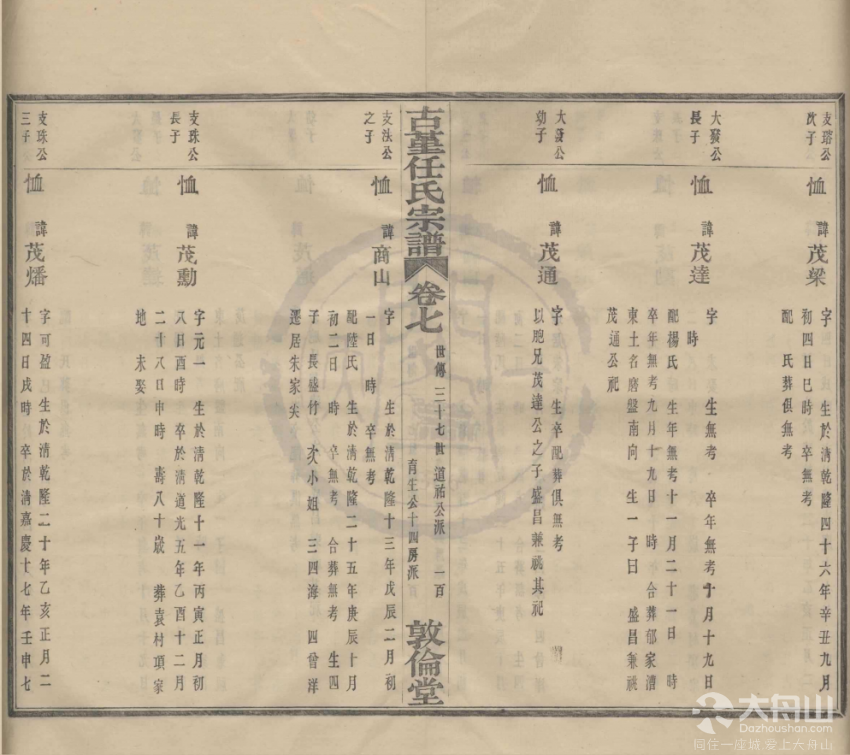 支瑢公
次子
恤
諱
茂梁
字 生於清乾隆四十六年辛丑九月
初四日巳時 卒無考
配 氏葬俱無考
大發公
長子
恤
諱
茂達
字 生無考 卒年無考十月十九日
時
配楊氏 生年無考十一月二十一日 時
卒年無考九月十九日 時 合葬郁家漕
東土名磨盤南向 生一子曰 盛昌兼祧
茂通公祀
大發公
幼子
恤
諱
茂通
字 生卒配葬俱無考
以胞兄茂達公之子盛昌兼祧其祀
古堇任氏宗譜
卷七
世傳 三十七世 道祐公派 一百
育生公十四房派 百
敦倫堂
支法公
之子
恤
諱
商山
字 生於清乾隆十三年戊辰二月初
一日 時 卒無考
配陸氏 生於清乾隆二十五年庚辰十月
初二日 時 卒無考 合葬無考 生四
子 長盛竹 次小姐 三四海 四曾洋
遷居朱家尖
支珠公
長子
恤
諱
茂勳
字元一 生於清乾隆十一年丙寅正月初
八日酉時 卒於清道光五年乙酉十二月
二十八日申時 壽八十歲 葬袁村項家
地 未娶
支珠公
三子
恤
諱
茂燔
字可盈 生於清乾隆二十年乙亥正月二
十四日戌時 卒於清嘉慶十七年壬申七
大舟山
Dazhoushan.com
同住一座城 爱上大舟山